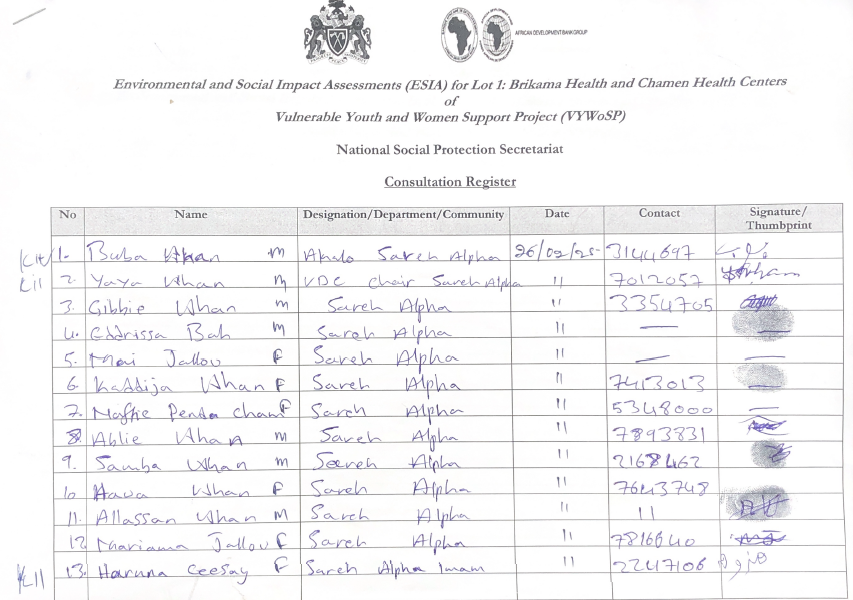 AFRICAN DEVELOPMENT BANK GROUP
Environmental and Social Impact Assessments (ESIA) for Lot 1: Brikama Health and Chamen Health Centers
of
Vulnerable Youth and Women Support Project (VYWoSP)
National Social Protection Secretariat
Consultation Register
No Name Designation/Department/Community Date Contact Signature/
Thumbprint
KII 1. Buba Whan M Akalo Sareh Alpha 26/02/25 3144697
KII 2. Yaya Whan M VDC chair Sareh Alpha 11 7012057
3. Gibbie Whan M Sareh Alpha 11 3354705
4. Eddrissa Bah M Sareh Alpha 11 —
5. Mai Jallou F Sareh Alpha 11 — —
6. Kaddija Whan F Sareh Alpha 11 7413013 —
7. Naffie Penda Cham F Sareh Alpha 11 5348000 —
8 Ablie Whan M Sareh Alpha 11 7893831
9. Samba Whan M Sareh Alpha 11 2168462
10 Hawa Whan F Sareh Alpha 11 7643748
11. Allassan Whan M Sareh Alpha 11 11
12. Mariama Jallou F Sareh Alpha 11 7816640
KII 13. Haruna Ceesay F Sareh Alpha Imam 11 2247106